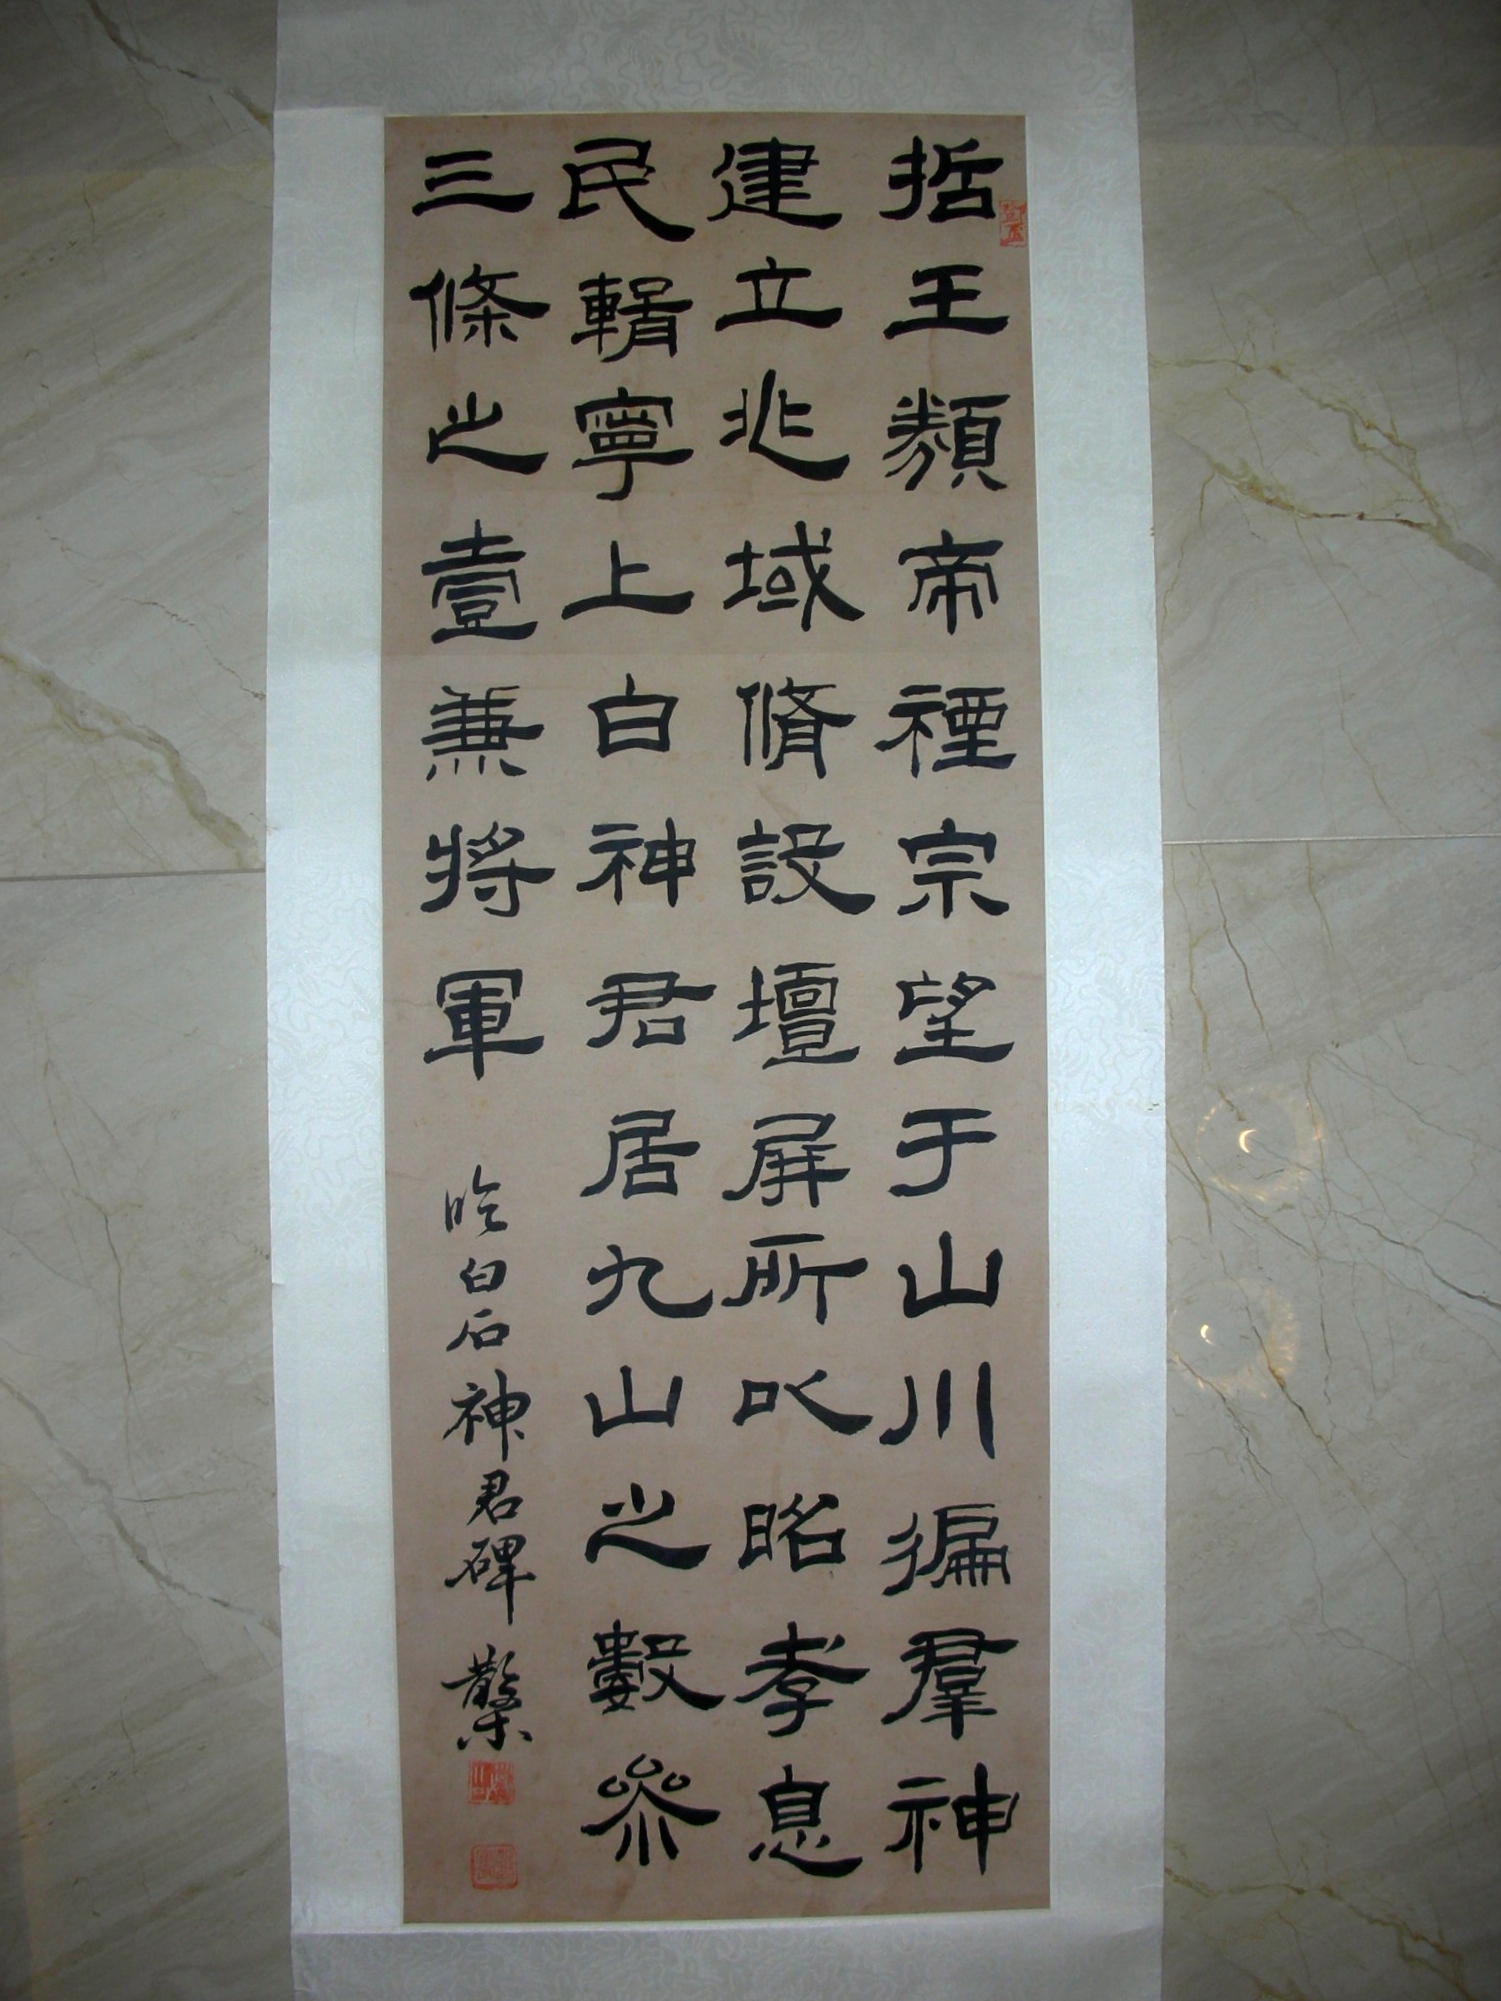 括王類帝禋宗望于山川徧羣神
建立兆域脩設壇屏所以昭孝息
民輯寧上白神君居九山之數參
三條之壹兼將軍
臨白石神君碑